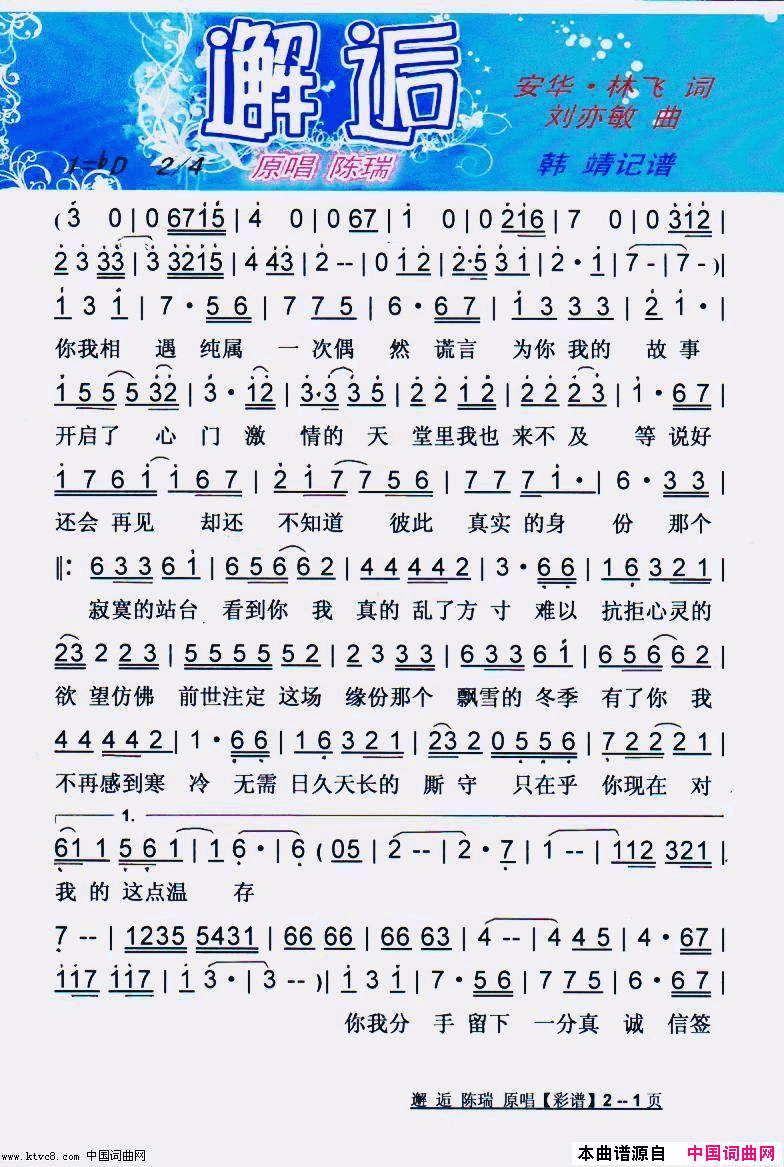 邂逅
安华·林飞 词
刘亦敏 曲
1=♭D 2/4 原唱 陈瑞 韩 靖记谱
( 3 0 | 0 6715 | 4 0 | 0 67 | 1 0 | 0 216 | 7 0 | 0 312 |
2 3 33 | 3 3215 | 4 43 | 2 -- | 0 12 | 2·5 31 | 2·1 | 7 - | 7 - )|
1 3 1 | 7·56 | 7 75 | 6·67 | 1 3 3 3 | 2 1·|
你我相 遇纯属 一次偶 然谎言 为你我的 故事
1 5 5 5 32 | 3·12 | 3·3 3 5 | 2 2 12 | 2 2 2 3 | 1·67 |
开启了 心门激 情的天 堂里我也 来不及 等说好
1 7 6 1 | 1 6 7 | 2 1 7 7 5 6 | 7 7 7 1·| 6·33 |
还会再见 却还 不知道 彼此 真实的身 份那个
‖: 6 3 3 6 1 | 6 5 6 6 2 | 4 4 4 4 2 | 3·66 | 1 6 3 2 1 |
寂寞的站台 看到你我 真的乱了方寸 难以 抗拒心灵的
23 2 2 3 | 5 5 5 5 5 2 | 2 3 33 | 6 3 3 6 1 | 6 5 6 6 2 |
欲望仿佛 前世注定这场 缘份那个 飘雪的冬季 有了你我
4 4 4 4 2 | 1·66 | 1 6 3 2 1 | 23 2 0 5 5 6 | 7 2 2 2 1 |
不再感到寒 冷无需 日久天长的 厮守 只在乎 你现在对
1.
61 1 5 6 1 | 1 6·| 6·( 05 | 2 -- | 2·7 | 1 -- | 112 321 |
我的这点温 存
7 -- | 1235 5431 | 66 66 | 66 63 | 4 -- | 4 4 5 | 4·67 |
117 117 | 1 3·| 3 -- )| 1 3 1 | 7·56 | 7 75 | 6·67 |
你我分 手留下 一分真 诚信签
邂 逅 陈瑞 原唱【彩谱】2 -- 1 页
www.ktvc8.com 中国词曲网
本曲谱源自 中国词曲网